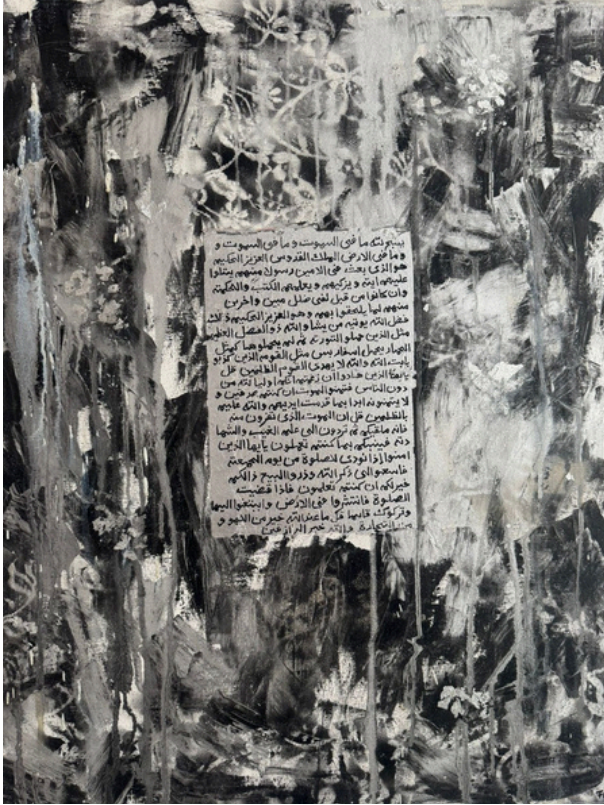 يسبح لله ما في السموت و ما في السموت و
و ما في الارض الملك القدوس العزيز الحكيم
هو الذي بعث في الامين رسولا منهم يتلوا
عليهم ايته و يزكيهم و يعلمهم الكتب والحكمة
وان كانوا من قبل لفي ضلل مبين و اخرين
منهم لما يلحقوا بهم و هو العزيز الحكيم ذلك
فضل الله يوتيه من يشا و الله ذو الفضل العظيم
مثل الذين حملوا التورته ثم لم يحملوها كمثل
الحمار يحمل اسفارا بس مثل القوم الذين كذبو
بايت الله والله لا يهدي القوم الظلمين قل
يايها الذين هادوا ان زعمتم انكم اوليا لله من
دون الناس فتمنو الموت ان كنتم صدقين و
لا يتمنونه ابدا بما قدمت ايديهم والله عليم
بالظلمين قل ان الموت الذي تفرون منه
فانه ملقيكم ثم تردون الى علم الغيب والشها
دته فينبيكم بما كنتم تعملون يايها الذين
امنوا إذا نودى للصلوة من يوم الجمعته
فاسعوا الى ذكر الله وذروا البيع ذالكم
خير لكم ان كنتم تعلمون فاذا قضيت
الصلوة فانتشروا في الارض وابتغوا اليها
وتركوك قايما قل ما عند الله خير من اللهو و
من التجارة والله خير الرازقين